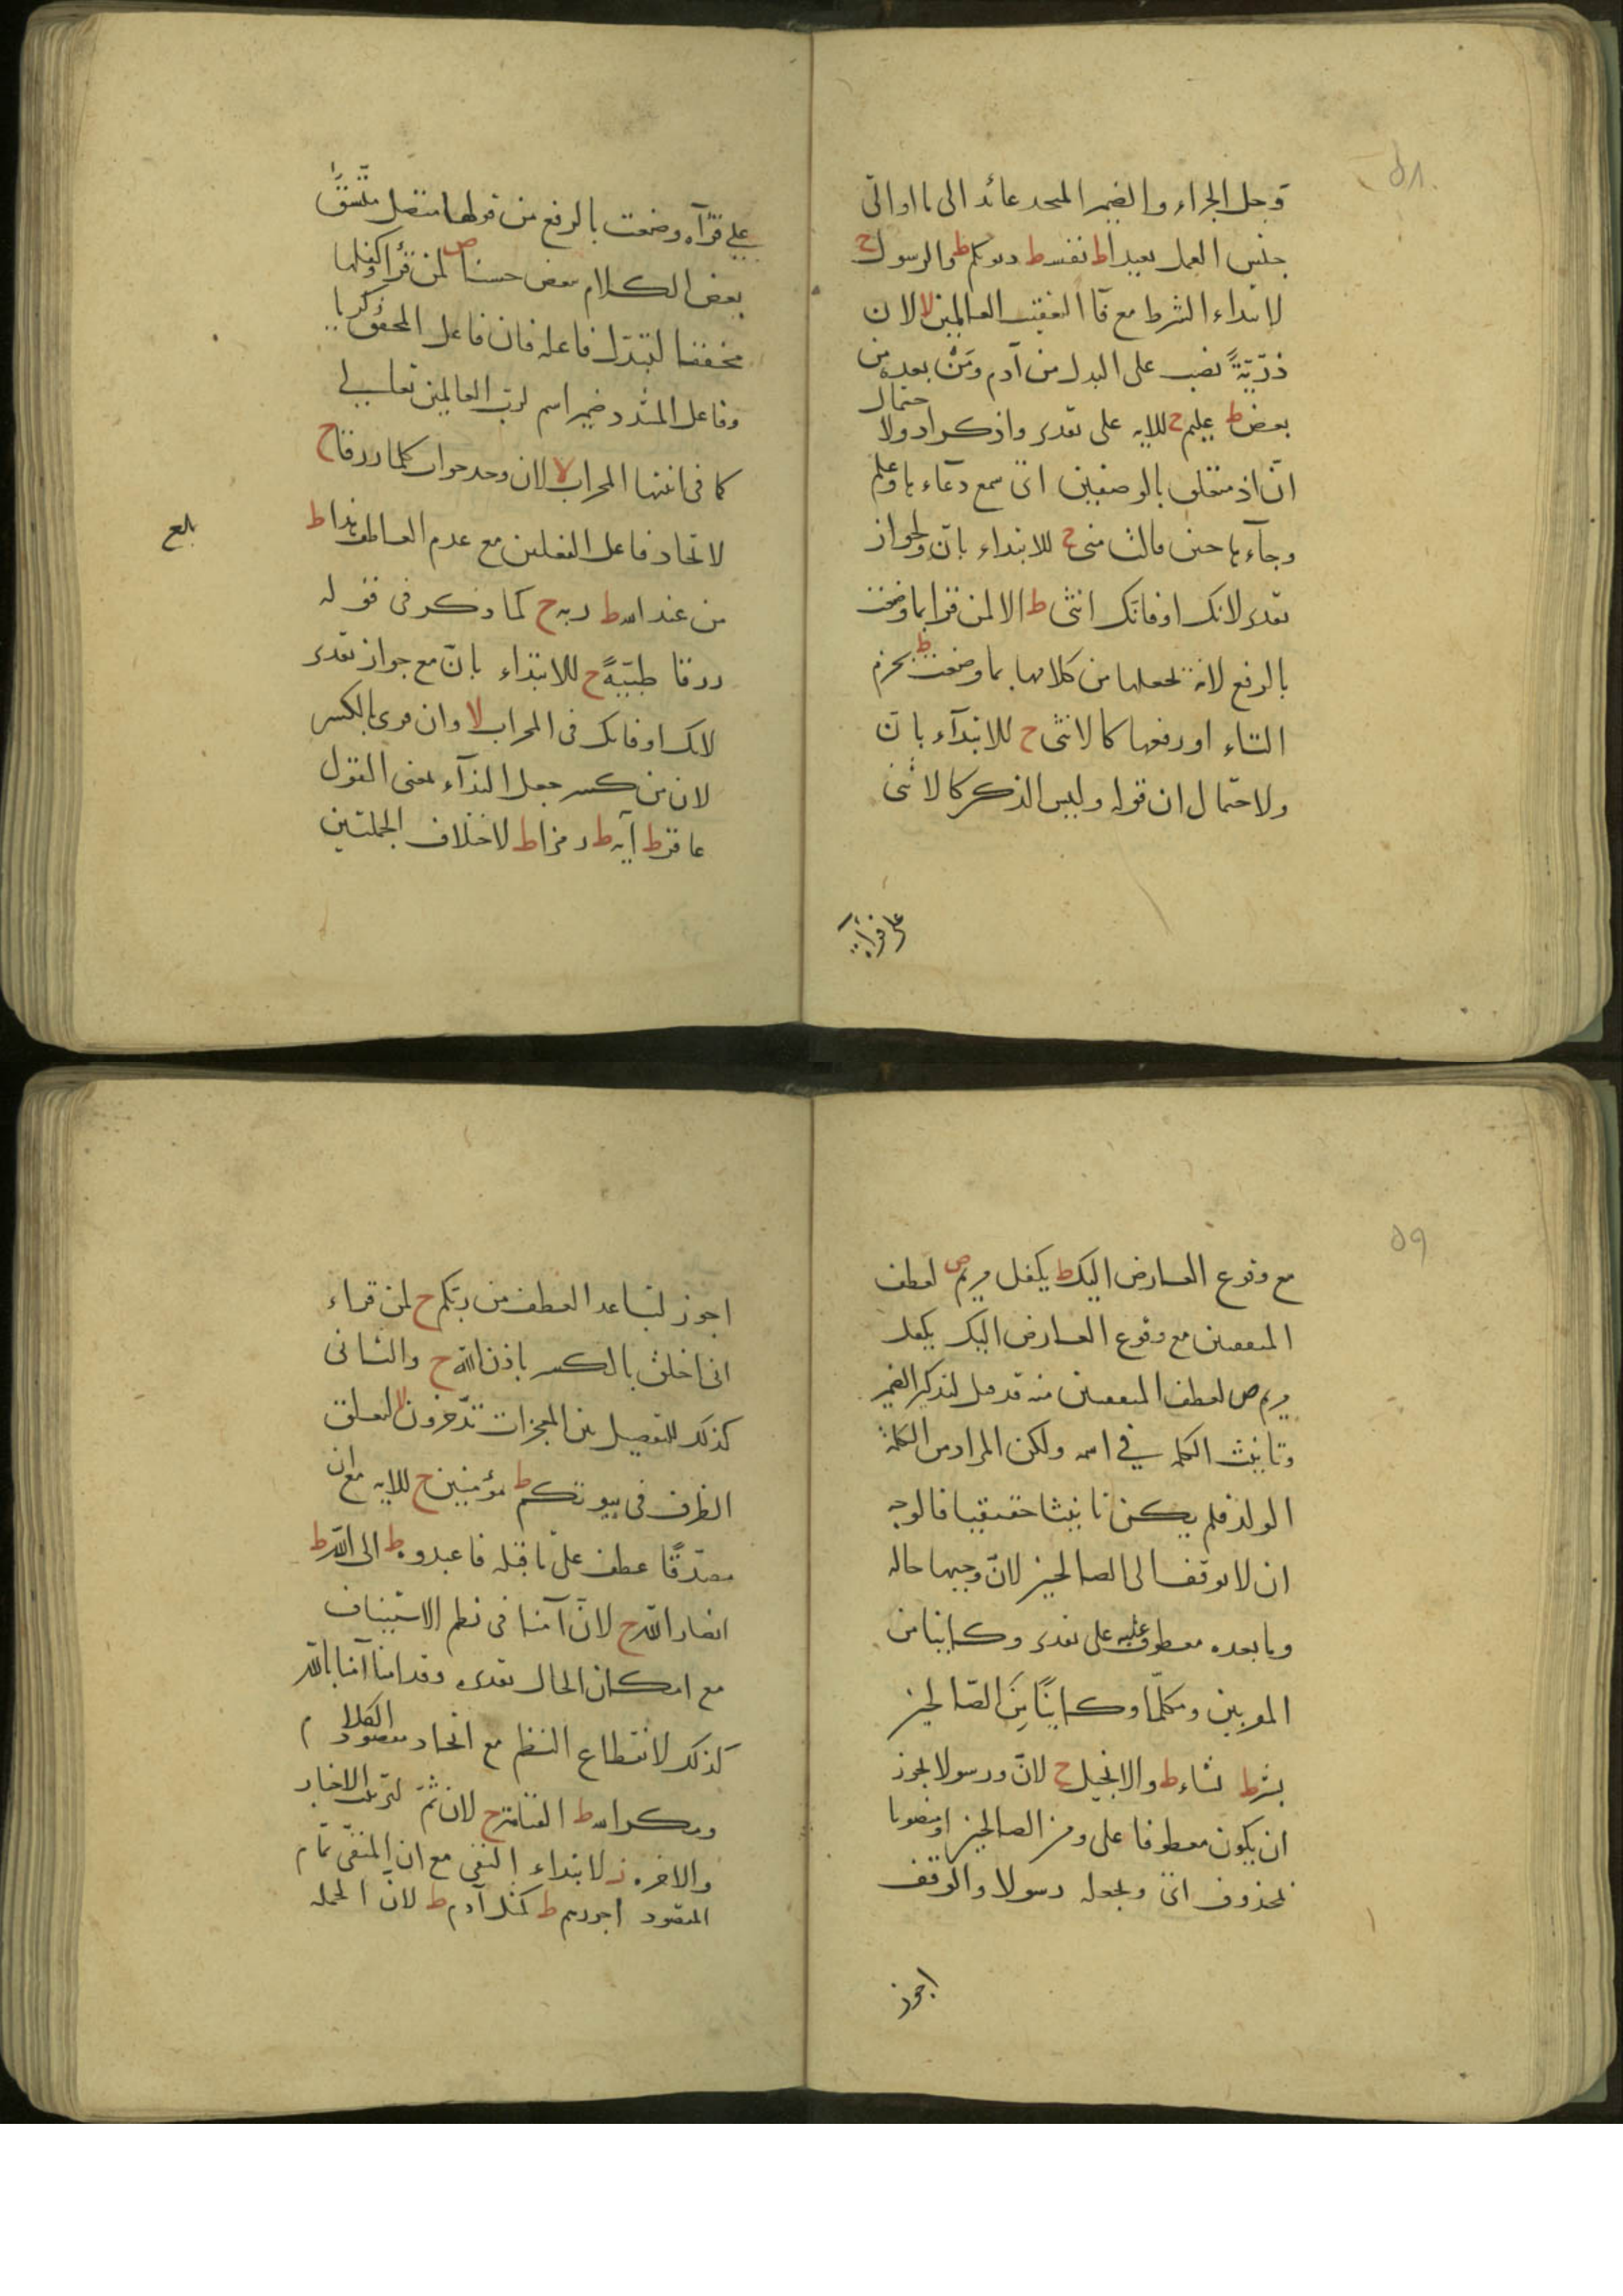 ٥٨
وجل الجزاء والضمير المتحد عائد الى ما او الى
جنس العمل بعيدا ط نفسه ط ذنوبكم ط والرسول ج
لابتداء الشرط مع فآ التعقيب العالمين لا لان
ذرّيّةً نصب على البدل من آدم ومَنْ بعده من
بعض ط عليم ج للايه على تقدير واذكر اذ ولاحتمال
انّ اذ متعلق بالوصفين اى سمع دعآءها وعلم
رجآءها حين قالت منى ج للابتداء بانّ ولجواز
تقدير لانك او فانّك انثى ط الا لمن قرا بما وضعت
بالرفع لانه يجعلها من كلامها بما وضعت ط بجزم
التاء او رفعها كالانثى ج للابتدآء بانّ
ولاحتمال ان قوله وليس الذكر كالانثى
على قرآءة
على قرآءة وضعت بالرفع من قولها متصل متّسق
بعض الكلام ببعض حسنا ص لمن قرأ وكفلها
مخففا لتبدّل فاعله فان فاعل المخفف زكريا
وفاعل المشدد ضمير اسم لربّ العالمين تعالى
كما فى انبتها المحراب لا لان وجد جواب كلما رزقا ج
لاتحاد فاعل الفعلين مع عدم العاطف هذا ط
من عند الله ط ربه ج كما ذكر فى قوله
رزقا طيّبةً ج للابتداء بانّ مع جواز تقدير
لانك او فانك فى المحراب لا وان قرى بالكسر
لان من كسر جعل الندآء بمعنى القول
عاقر ط آية ط رمزا ط لاختلاف الجملتين
بلغ
٥٩
مع وقوع العارض اليك ط يكفل مريم ص لعطف
المتفقتين مع وقوع العارض اليك يكفل
مريم ص لعطف المتفقتين منه قد قيل لتذكير الضمير
وتانيث الكلمة في اسمه ولكن المراد من الكلمة
الولد فلم يكن تانيثا حقيقيا فالوجه
ان لا يوقف الى الصالحين لانّ وجيها حاله
وما بعده معطوف عليه على تقدير وكاينا من
المقربين ومكلّما وكاينًا مِنَ الصّالحين
بشر ط يشاء ط والانجيل ج لانّ ورسولا يجوز
ان يكون معطوفا على ومن الصالحين او منصوبا
بمحذوف اى ويجعله رسولا والوقف
اجوز
اجوز لتباعد العطف من ربّكم ج لمن قراء
انى اخلق بالكسر باذن الله ج والثانى
كذلك للتفصيل بين المعجزات تدّخرون لا لتعلق
الظرف فى بيوتكم ط مؤمنين ج للايه مع ان
مصدّقًا عطف على ما قبله فاعبدوه ط الى الله ط
انصار الله ج لانّ آمنا فى نظم الاستيناف
مع امكان الحال بتقدير وقد امنا آمنا بالله
كذلك لانقطاع النظم مع اتحاد مقصود الكلام
ومكر الله ط القيامة ج لان ثمّ لترتيب الاخبار
والاخرة ز لابتداء النفى مع ان النفى تمام
المقصود اجورهم ط كمثل آدم ط لانّ الجملة